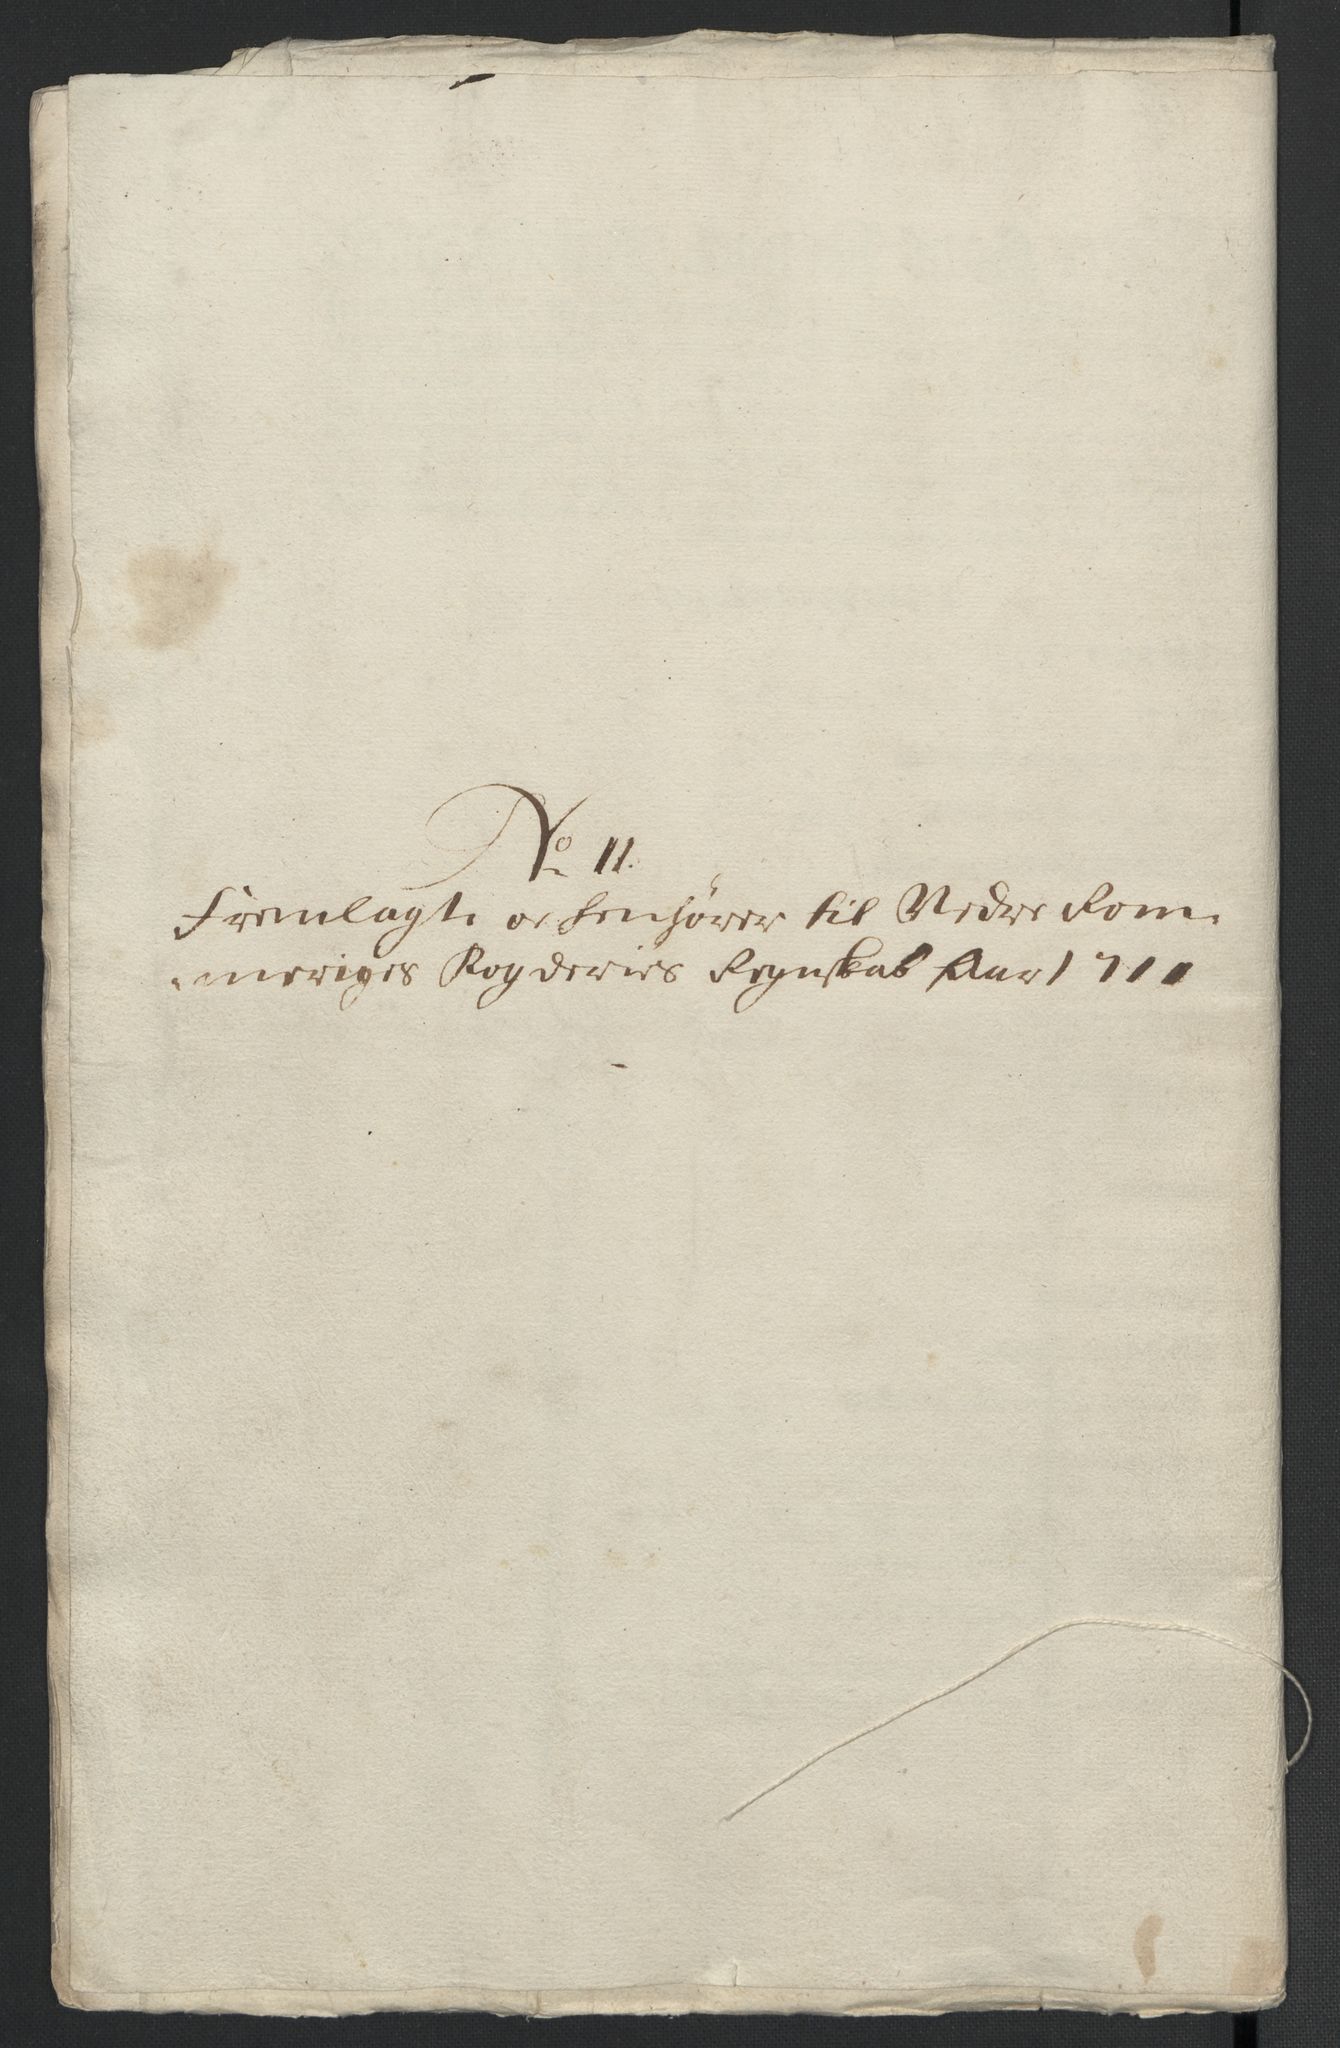 No 11.
Fremlagt oc henhörer til Nedre Rom-
meriges Fogderies Regnskab Aar 1711